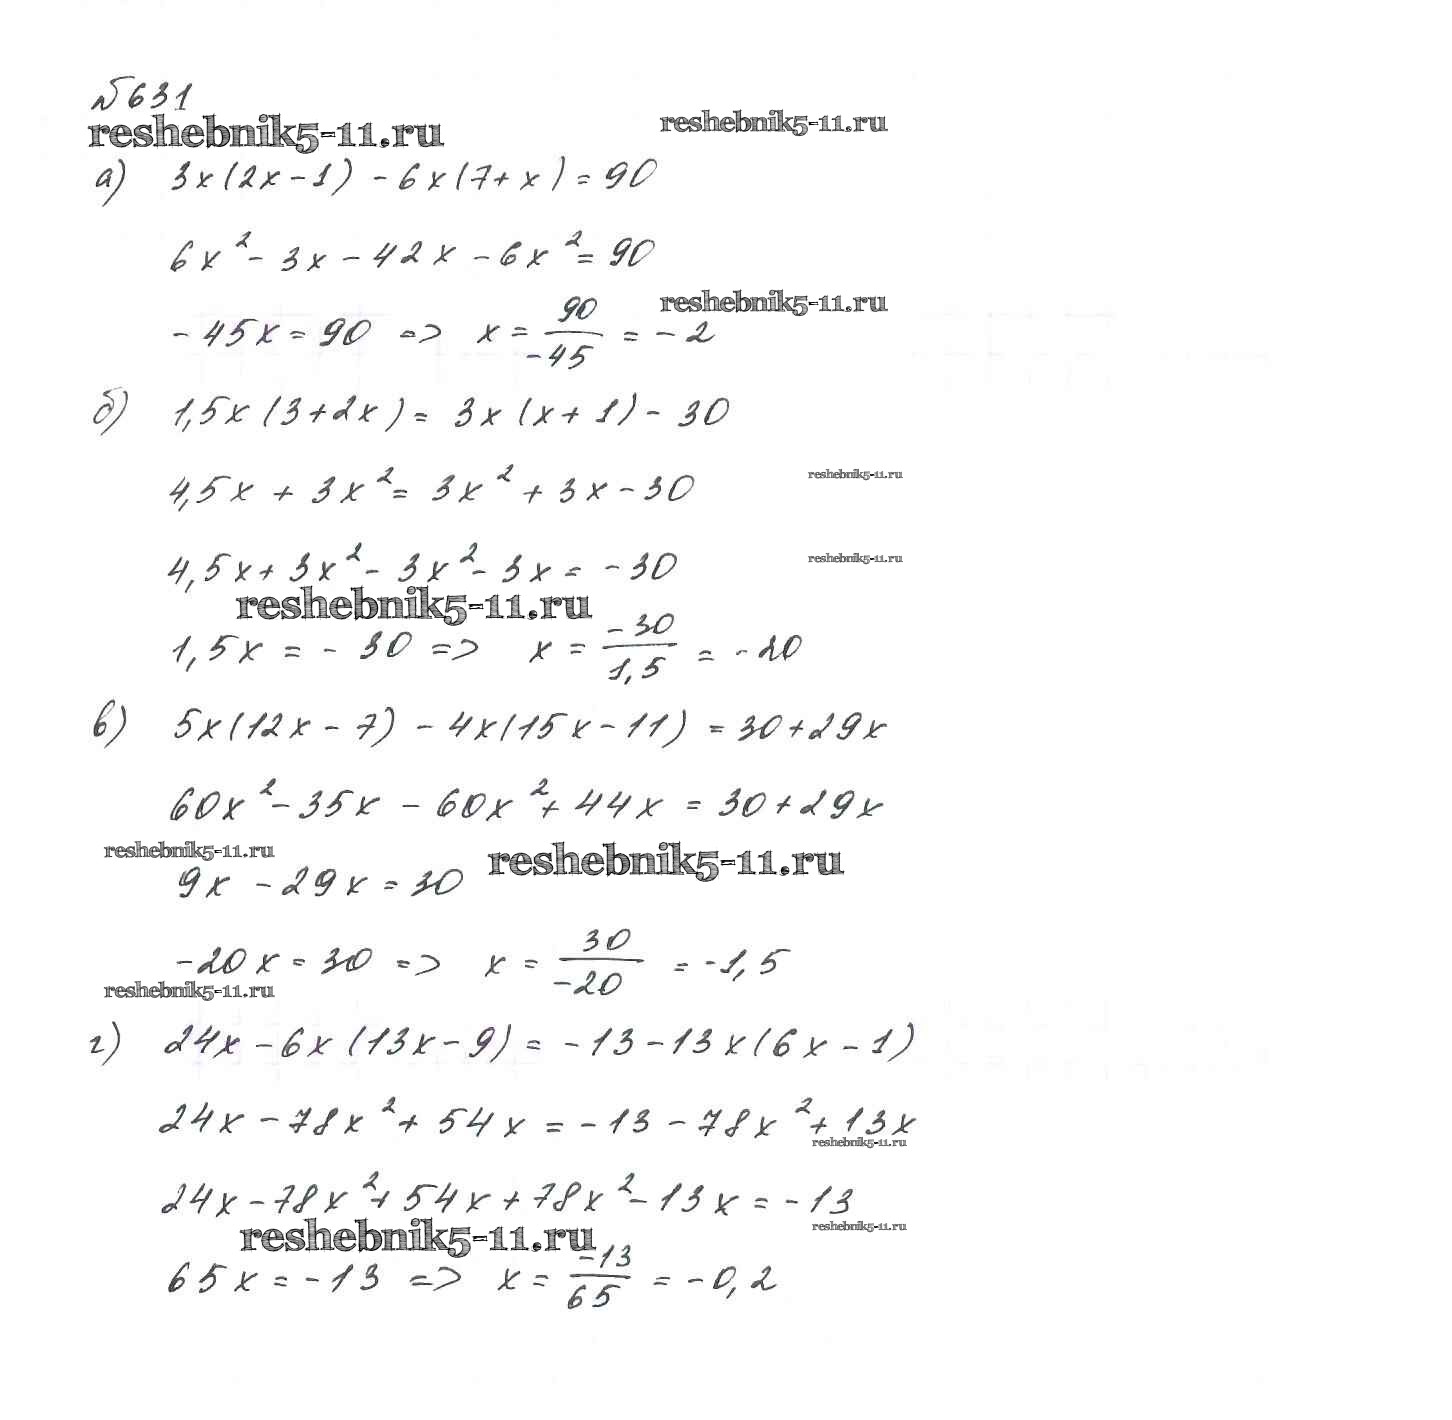 №631
reshebnik5-11.ru reshebnik5-11.ru
а) 3x(2x-1) - 6x(7+x) = 90
6x² - 3x - 42x - 6x² = 90
reshebnik5-11.ru
-45x = 90 => x = 90/-45 = -2
б) 1,5x(3+2x) = 3x(x+1) - 30
reshebnik5-11.ru
4,5x + 3x² = 3x² + 3x - 30
reshebnik5-11.ru
4,5x + 3x² - 3x² - 3x = -30
reshebnik5-11.ru
1,5x = -30 => x = -30/1,5 = -20
в) 5x(12x - 7) - 4x(15x - 11) = 30 + 29x
60x² - 35x - 60x² + 44x = 30 + 29x
reshebnik5-11.ru reshebnik5-11.ru
9x - 29x = 30
-20x = 30 => x = 30/-20 = -1,5
reshebnik5-11.ru
г) 24x - 6x(13x - 9) = -13 - 13x(6x - 1)
24x - 78x² + 54x = -13 - 78x² + 13x
reshebnik5-11.ru
24x - 78x² + 54x + 78x² - 13x = -13
reshebnik5-11.ru
reshebnik5-11.ru
65x = -13 => x = -13/65 = -0,2